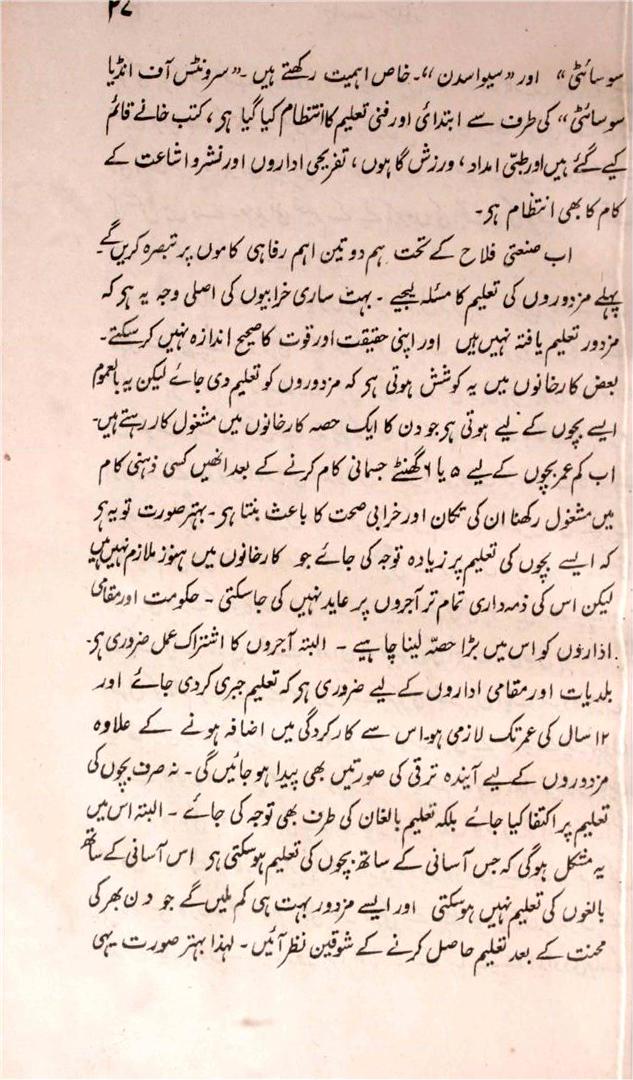 ۲۷
سوسائٹی“ اور ”سیوا سدن“۔ خاص اہمیت رکھتے ہیں۔ ”سرونٹس آف انڈیا
سوسائٹی“ کی طرف سے ابتدائی اور فنی تعلیم کا انتظام کیا گیا ہی، کتب خانے قائم
کیے گئے ہیں اور طبّی امداد، ورزش گاہوں، تفریحی اداروں اور نشر و اشاعت کے
کام کا بھی انتظام ہی۔
اب صنعتی فلاح کے تحت ہم دو تین اہم رفاہی کاموں پر تبصرہ کریں گے۔
پہلے مزدوروں کی تعلیم کا مسئلہ لیجیے۔ بہت ساری خرابیوں کی اصلی وجہ یہ ہی کہ
مزدور تعلیم یافتہ نہیں ہیں اور اپنی حقیقت اور قوت کا صحیح اندازہ نہیں کر سکتے۔
بعض کارخانوں میں یہ کوشش ہوتی ہی کہ مزدوروں کو تعلیم دی جائے لیکن یہ بالعموم
ایسے بچوں کے لیے ہوتی ہی جو دن کا ایک حصہ کارخانوں میں مشغول کار رہتے ہیں۔
اب کم عمر بچوں کے لیے ۵ یا ۶ گھنٹے جسمانی کام کرنے کے بعد انھیں کسی ذہنی کام
میں مشغول رکھنا ان کی تکان اور خرابی صحت کا باعث بنتا ہی۔ بہتر صورت تو یہ ہی
کہ ایسے بچوں کی تعلیم پر زیادہ توجہ کی جائے جو کارخانوں میں ہنوز ملازم نہیں ہیں
لیکن اس کی ذمہ داری تمام تر آجروں پر عاید نہیں کی جاسکتی۔ حکومت اور مقامی
اداروں کو اس میں بڑا حصّہ لینا چاہیے۔ البتہ آجروں کا اشتراک عمل ضروری ہی۔
بلدیات اور مقامی اداروں کے لیے ضروری ہی کہ تعلیم جبری کر دی جائے اور
۱۲ سال کی عمر تک لازمی ہو۔ اس سے کارکردگی میں اضافہ ہونے کے علاوہ
مزدوروں کے لیے آیندہ ترقی کی صورتیں بھی پیدا ہو جائیں گی۔ نہ صرف بچوں کی
تعلیم پر اکتفا کیا جائے بلکہ تعلیم بالغان کی طرف بھی توجہ کی جائے۔ البتہ اس میں
یہ مشکل ہوگی کہ جس آسانی کے ساتھ بچوں کی تعلیم ہو سکتی ہی اس آسانی کے ساتھ
بالغوں کی تعلیم نہیں ہو سکتی اور ایسے مزدور بہت ہی کم ملیں گے جو دن بھر کی
محنت کے بعد تعلیم حاصل کرنے کے شوقین نظر آئیں۔ لہذا بہتر صورت یہی